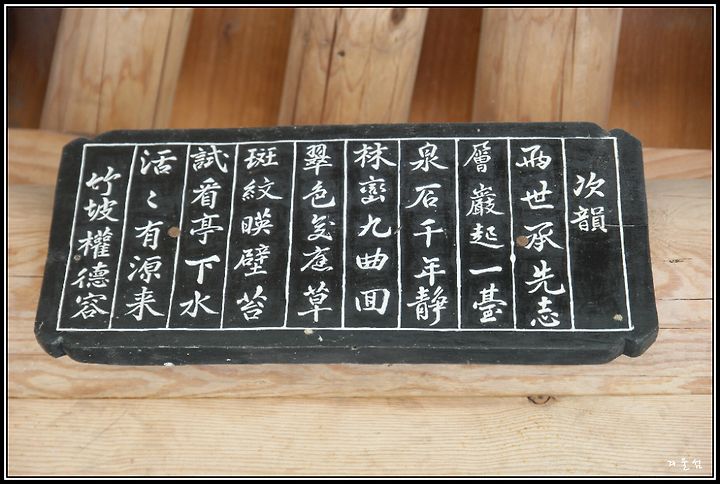 次韻
兩世承先志
層巖起一臺
泉石千年靜
林巒九曲囬
翠色交庭草
斑紋暎壁苔
試看亭下水
活〻有源来
竹坡權德容